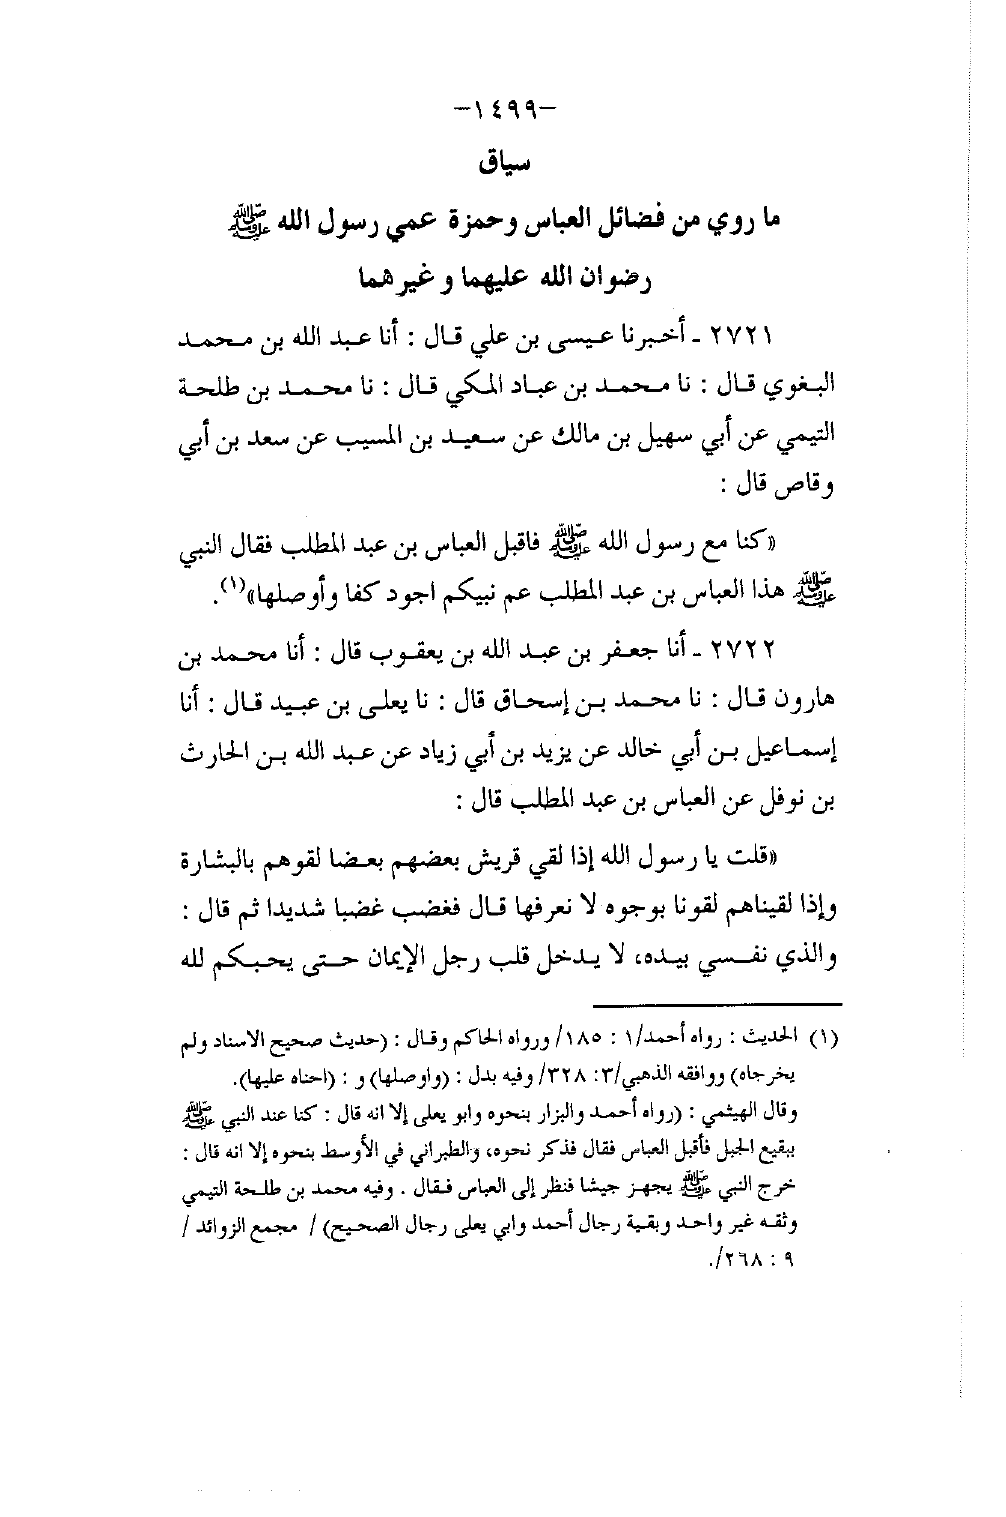 -١٤٩٩-
سياق
ما روي من فضائل العباس وحمزة عمي رسول الله ﷺ
رضوان الله عليهما وغيرهما
٢٧٢١ - أخبرنا عيسى بن علي قال : أنا عبد الله بن محمد
البغوي قال : نا محمد بن عباد المكي قال : نا محمد بن طلحة
التيمي عن أبي سهيل بن مالك عن سعيد بن المسيب عن سعد بن أبي
وقاص قال :
«كنا مع رسول الله ﷺ فاقبل العباس بن عبد المطلب فقال النبي
ﷺ هذا العباس بن عبد المطلب عم نبيكم اجود كفا وأوصلها»(١).
٢٧٢٢ - أنا جعفر بن عبد الله بن يعقوب قال : أنا محمد بن
هارون قال : نا محمد بن إسحاق قال : نا يعلى بن عبيد قال : أنا
إسماعيل بن أبي خالد عن يزيد بن أبي زياد عن عبد الله بن الحارث
بن نوفل عن العباس بن عبد المطلب قال :
«قلت يا رسول الله إذا لقي قريش بعضهم بعضا لقوهم بالبشارة
وإذا لقيناهم لقونا بوجوه لا نعرفها قال فغضب غضبا شديدا ثم قال :
والذي نفسي بيده، لا يدخل قلب رجل الإيمان حتى يحبكم لله
(١) الحديث : رواه أحمد/١ : ١٨٥/ ورواه الحاكم وقال : (حديث صحيح الاسناد ولم
يخرجاه) ووافقه الذهبي/٣: ٣٢٨/ وفيه بدل : (واوصلها) و : (احناه عليها).
وقال الهيثمي : (رواه أحمد والبزار بنحوه وابو يعلى إلا انه قال : كنا عند النبي ﷺ
ببقيع الجبل فأقبل العباس فقال فذكر نحوه، والطبراني في الأوسط بنحوه إلا انه قال :
خرج النبي ﷺ يجهز جيشا فنظر إلى العباس فقال . وفيه محمد بن طلحة التيمي
وثقه غير واحد وبقية رجال أحمد وابي يعلى رجال الصحيح) / مجمع الزوائد /
٩ : ٢٦٨/.